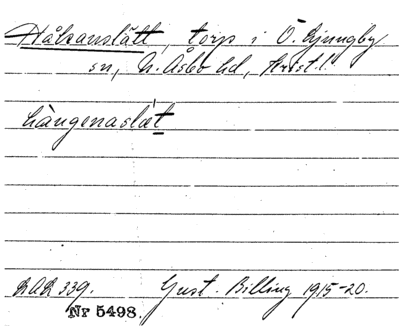 Hålanslätt, torp i Ö. Ljungby
sn, N. Åsbo hd, Krist. l.
hàngenaslæt
RAÄ 339. Gust. Billing 1915-20.
Nr 5498.